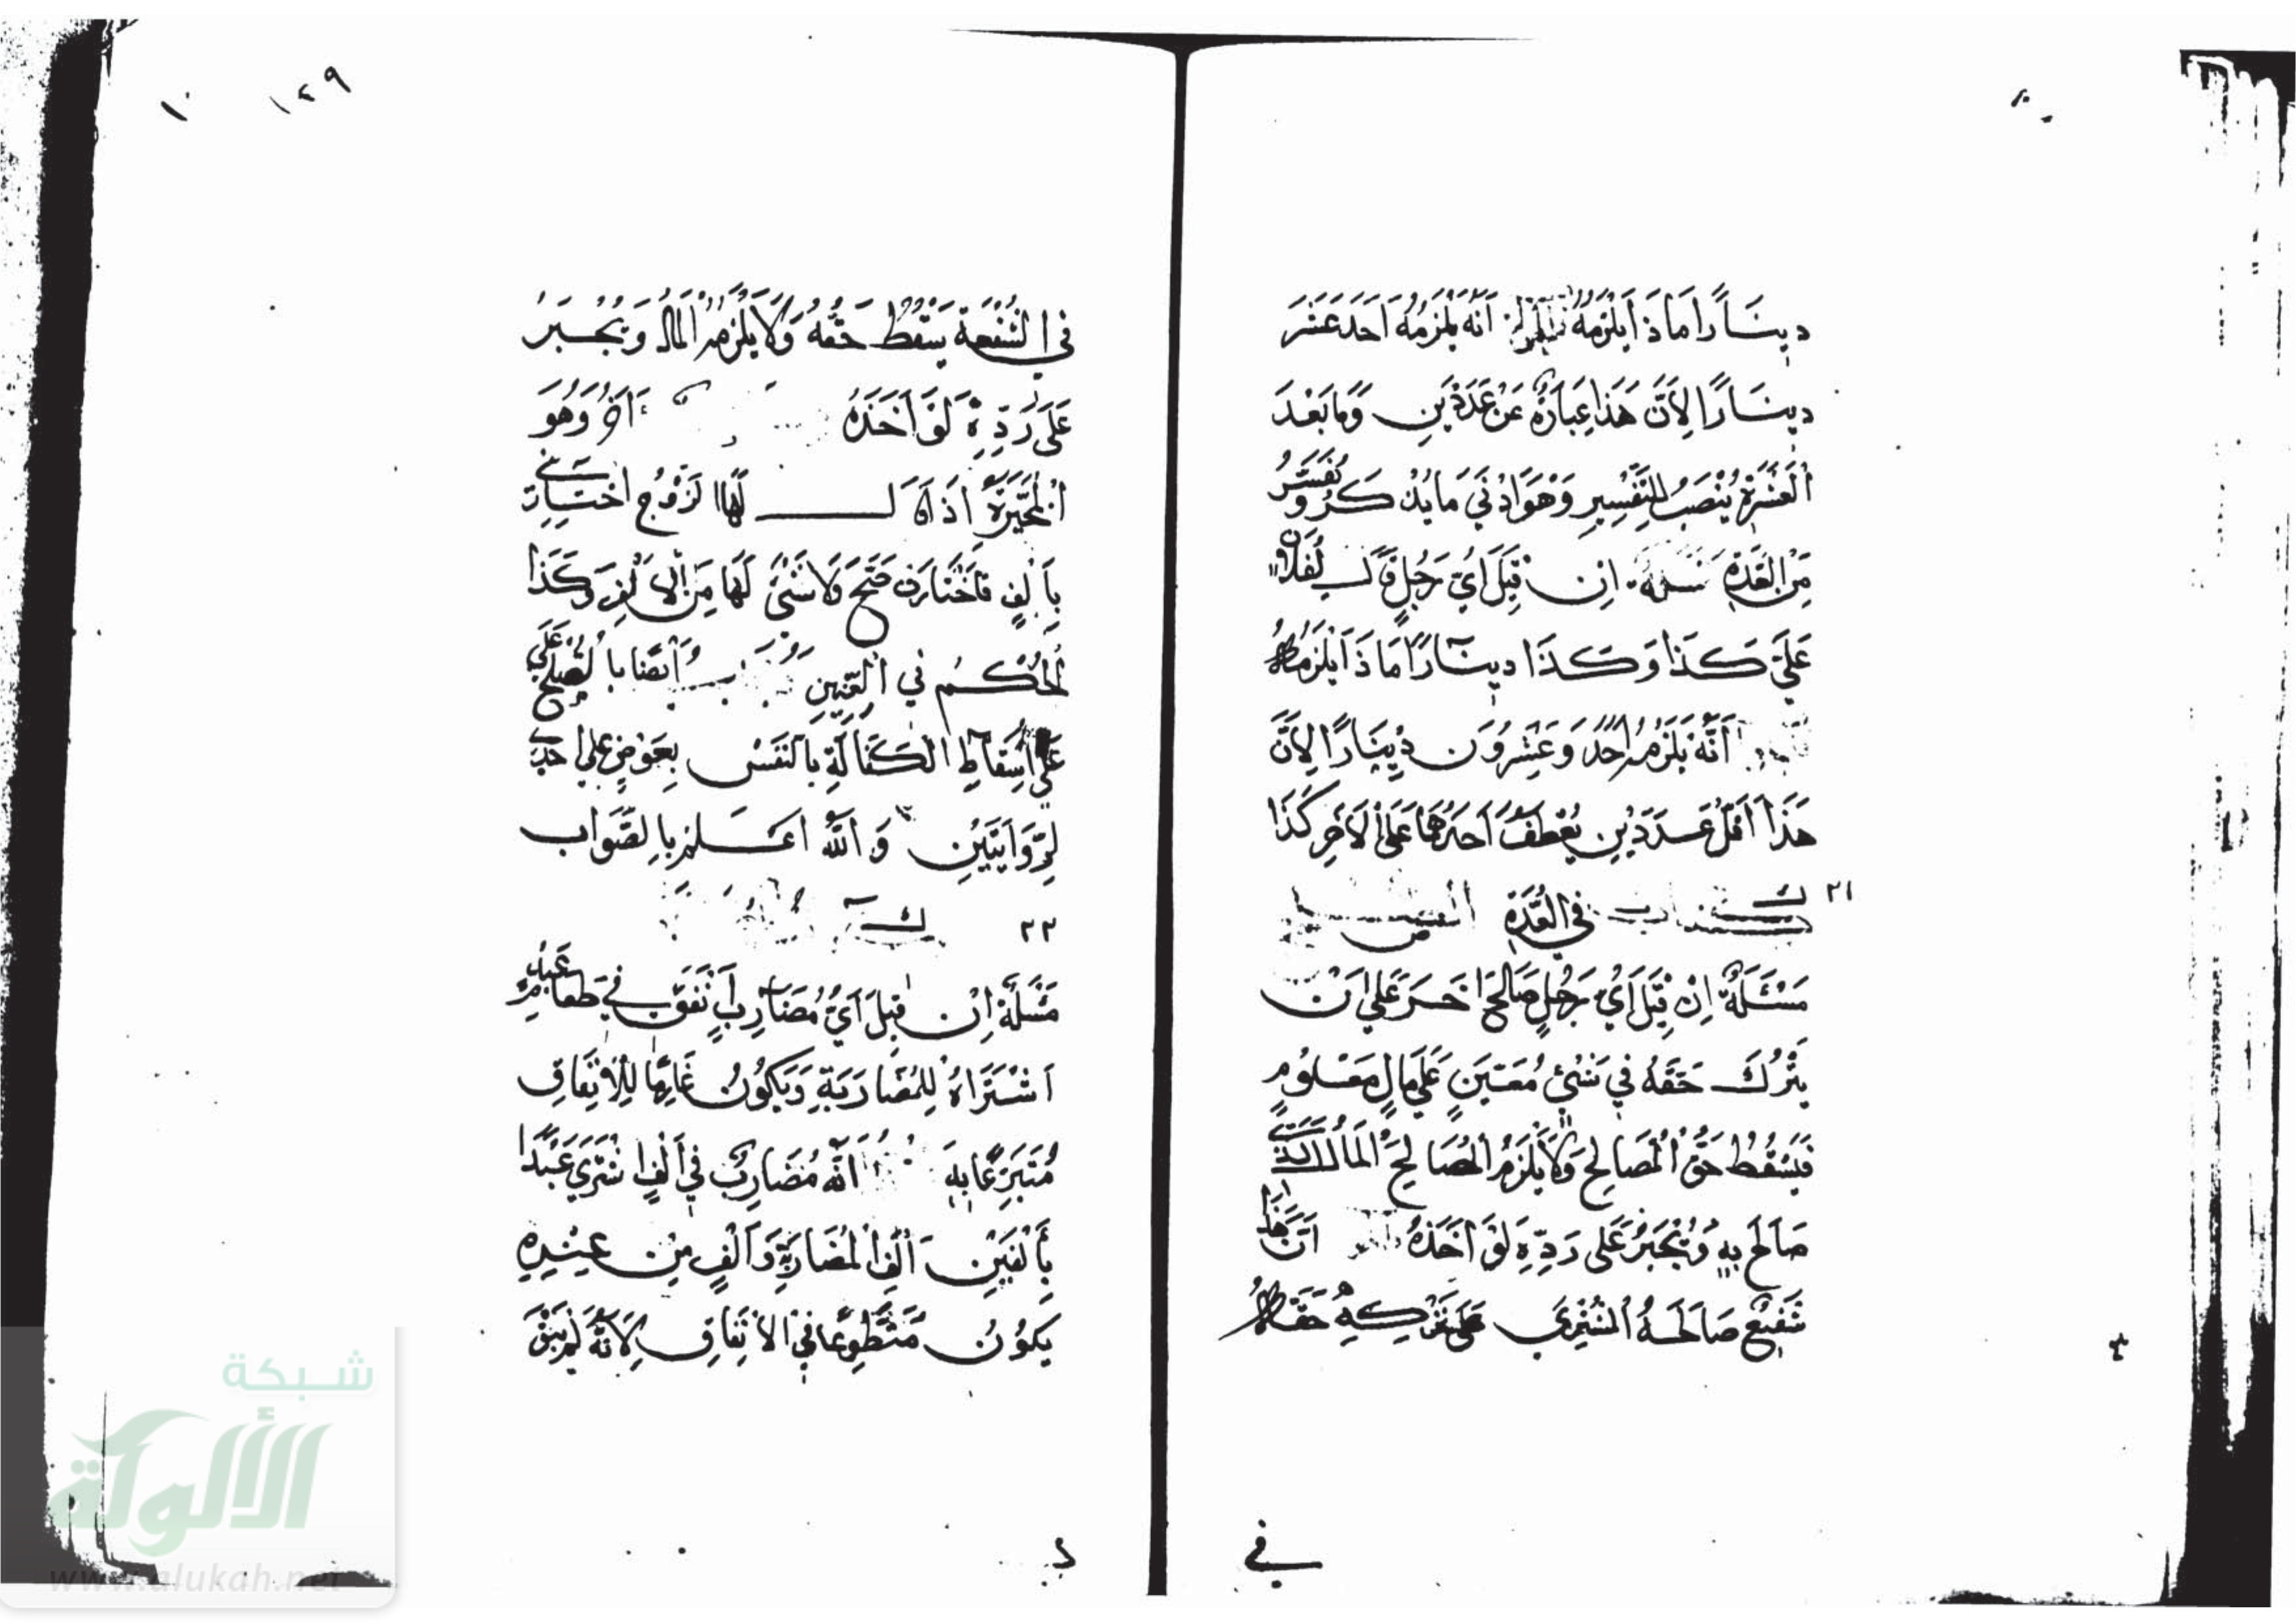 دِينَارًا مَاذَا يَلْزَمُهُ أَنَّهُ يَلْزَمُهُ أَحَدَ عَشَرَ
دِينَارًا لِأَنَّ هَذَا عِبَارَةٌ عَنْ عَدَدَيْنِ وَمَا بَعْدَ
الْعَشَرَةِ يُنْصَبُ لِلتَّفْسِيرِ وَهُوَ أَدْنَى مَا يُذْكَرُ وَيُفَسَّرُ
مِنَ الْعَدَدِ إِنْ قِيلَ أَيُّ رَجُلٍ قَالَ لِفُلَانٍ
عَلَيَّ كَذَا وَكَذَا دِينَارًا مَاذَا يَلْزَمُهُ
أَنَّهُ يَلْزَمُهُ أَحَدٌ وَعِشْرُونَ دِينَارًا لِأَنَّ
هَذَا أَقَلُّ عَدَدَيْنِ يُعْطَفُ أَحَدُهُمَا عَلَى الْآخَرِ كَذَا
٢١ كتاب فِي الْعُدَّةِ
مَسْئَلَةٌ إِنْ قِيلَ أَيُّ رَجُلٍ صَالَحَ آخَرَ عَلَى أَنْ
يَتْرُكَ حَقَّهُ فِي شَيْءٍ مُعَيَّنٍ عَلَى مَالٍ مَعْلُومٍ
فَيَسْقُطُ حَقُّ الْمُصَالِحِ وَلَا يَلْزَمُ الْمُصَالِحَ الْمَالُ الَّذِي
صَالَحَ بِهِ وَيُجْبَرُ عَلَى رَدِّهِ لَوْ أَخَذَهُ أَنَّ هَذَا
شَفِيعٌ صَالَحَهُ الْمُشْتَرِي عَلَى تَرْكِهِ حَقَّهُ
في
١٢٩ ١٠
فِي الشُّفْعَةِ يَسْقُطُ حَقُّهُ وَلَا يَلْزَمُهُ الْمَالُ وَيُجْبَرُ
عَلَى رَدِّهِ لَوْ أَخَذَهُ آخَرُ وَهُوَ
الْمُخَيَّرَةُ إِذَا قَالَ لَهَا الزَّوْجُ اخْتَارِينِي
بِأَلْفٍ فَاخْتَارَتْ صَحَّ وَلَا شَيْءَ لَهَا مِنَ الْأَلْفِ وَكَذَا
الْحُكْمُ فِي الْعِنِّينِ أَيْضًا بِالصُّلْحِ عَلَى
عَلَى إِسْقَاطِ الْكَفَالَةِ بِالنَّفْسِ بِعِوَضٍ عَلَى إِحْدَى
الرِّوَايَتَيْنِ وَاللَّهُ أَعْلَمُ بِالصَّوَابِ
٢٢
مَسْئَلَةٌ إِنْ قِيلَ أَيُّ مُضَارِبٍ أَنْفَقَ فِي طَعَامِ عَبْدٍ
اشْتَرَاهُ لِلْمُضَارَبَةِ وَيَكُونُ غَارِمًا لِلْإِنْفَاقِ
مُتَبَرِّعًا بِهِ أَنَّهُ مُضَارِبٌ فِي أَلْفٍ اشْتَرَى عَبْدًا
بِأَلْفَيْنِ أَلْفِ الْمُضَارَبَةِ وَأَلْفٍ مِنْ عِنْدِهِ
يَكُونُ مُتَطَوِّعًا فِي الْإِنْفَاقِ لِأَنَّهُ لَمْ يَبْقَ
شبكة
الألوكة
www.alukah.net